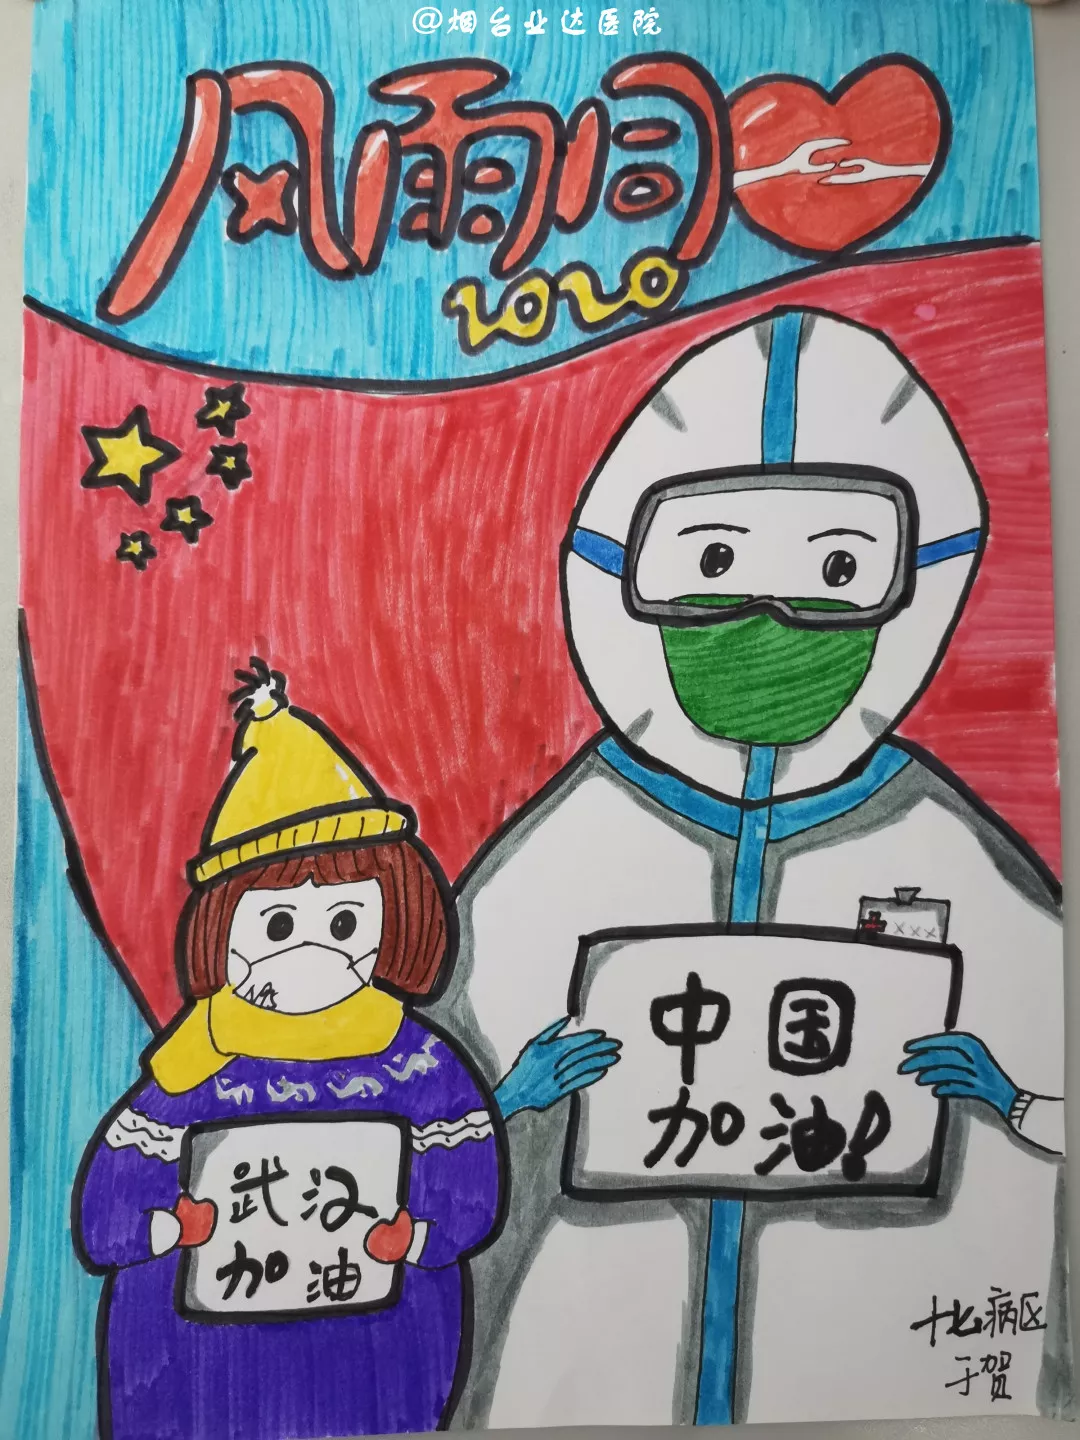 @烟台业达医院
风雨同
2020
N95
×××
中国
加油!
武汉
加油
十七病区
于贺